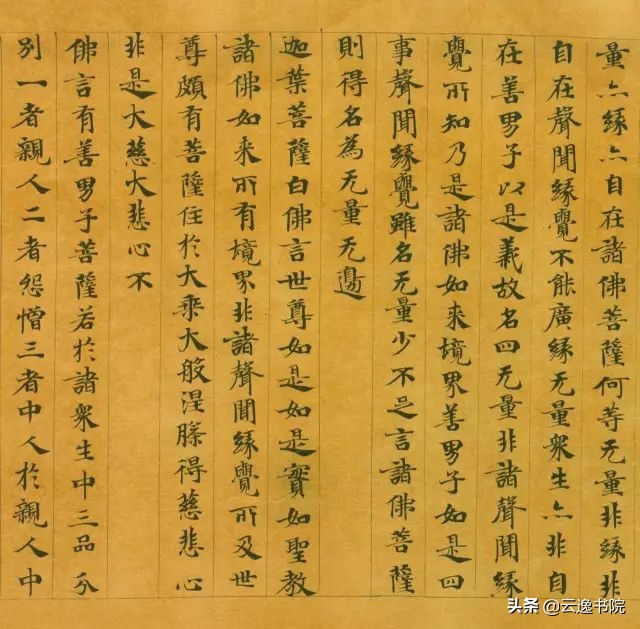 量亦緣亦自在諸佛菩薩何等无量非緣非
自在聲聞緣覺不能廣緣无量衆生亦非自
在善男子以是義故名四无量非諸聲聞緣
覺所知乃是諸佛如来境界善男子如是四
事聲聞緣覺雖名无量少不足言諸佛菩薩
則得名為无量无邊
迦葉菩薩白佛言世尊如是如是實如聖教
諸佛如来所有境界非諸聲聞緣覺所及世
尊頗有菩薩住於大乘大般涅槃得慈悲心
非是大慈大悲心不
佛言有善男子菩薩若於諸衆生中三品分
別一者親人二者怨憎三者中人於親人中
头条 @云逸书院